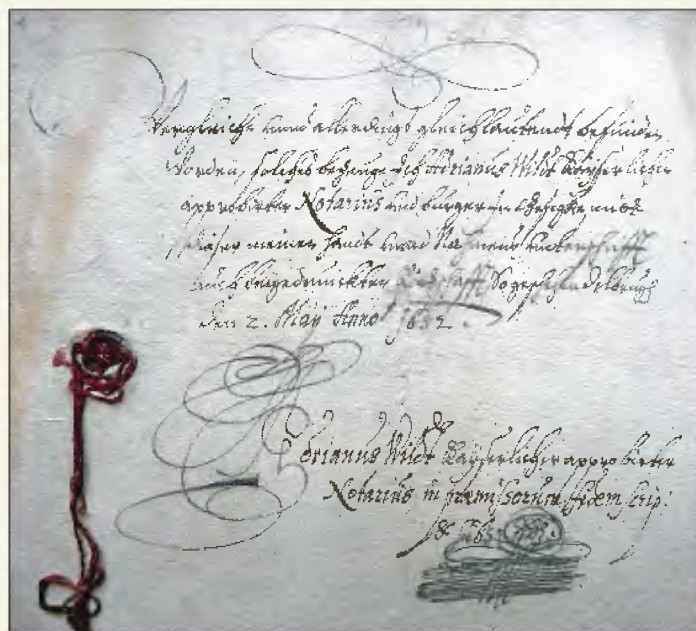 vergleicht unnd allerdings gleichlautendt befunden
worden, solches bezeuge Ich Adrianus Wildt Kayserlicher
approbirter Notarius und burger in mitt
dieser meiner handt unnd Nahmens underschrifft
auch beygedruckten So geschehen
den 2. May Anno 1632.
Adrianus Wildt Kayserlicher approbirter
Notarius in praemissorum fidem scrip: